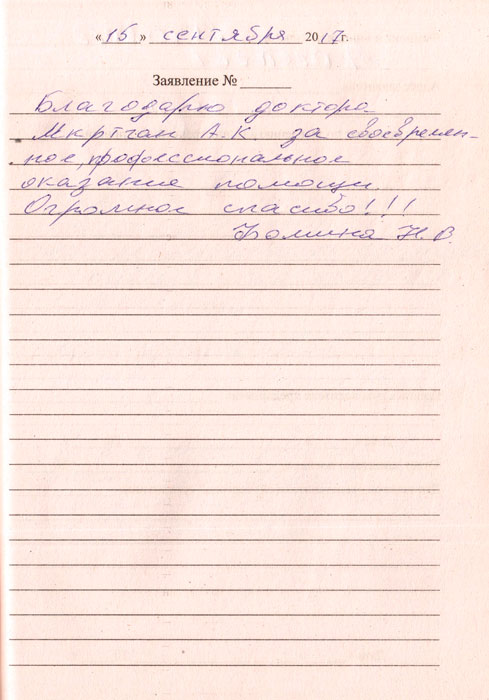 «15» сентября 2017г.
Заявление № ______
Благодарю доктора
Мкртчан А.К. за своевремен-
ное, профессиональное
оказание помощи.
Огромное спасибо!!!
Фомина Н.В.